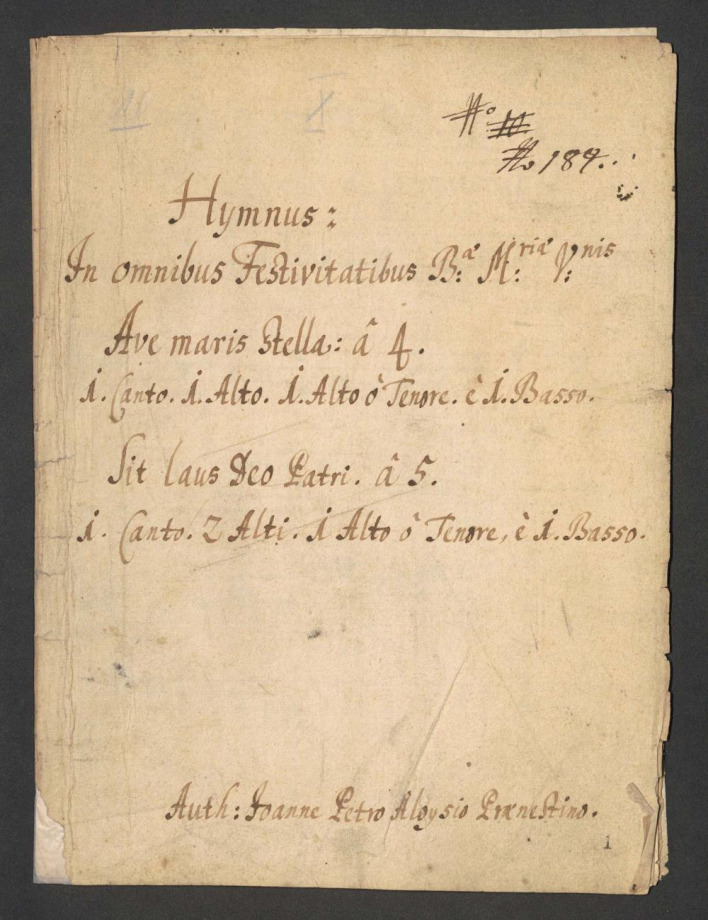 No
No 189.
Hymnus:
In omnibus Festivitatibus B:æ M:riæ V:nis
Ave maris Stella: â 4.
1. Canto. 1. Alto. 1. Alto ô Tenore. è 1. Basso.
Sit laus Deo Patri. â 5.
1. Canto. 2 Alti. 1 Alto ô Tenore, è 1. Basso.
Auth: Joanne Petro Aloysio Prænestino.
1